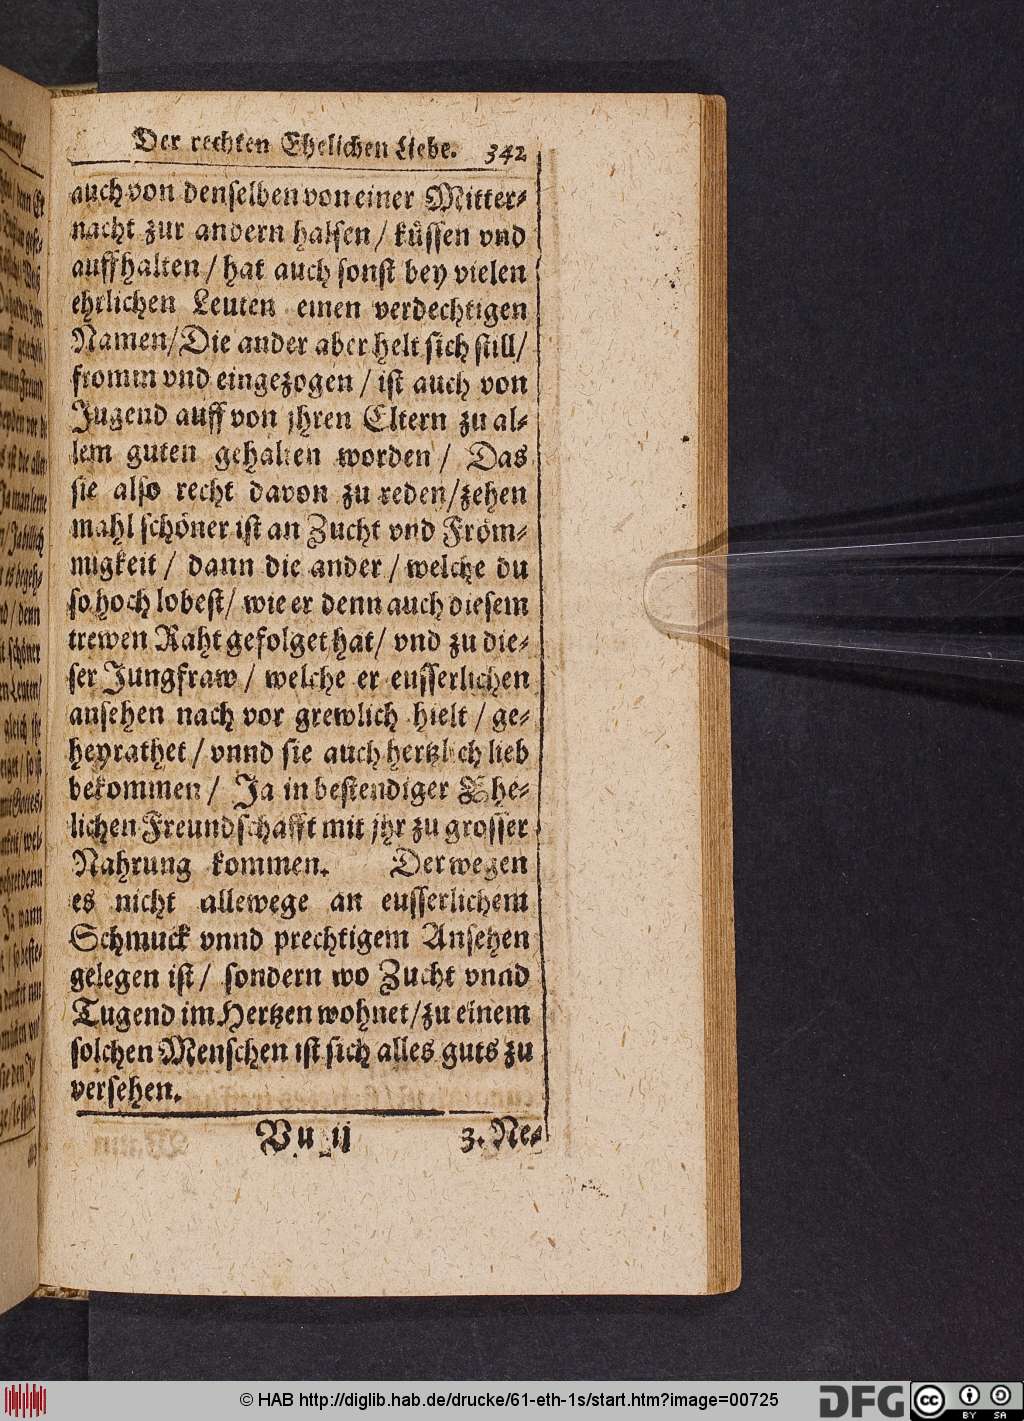 Der rechten Ehelichen Liebe. 342
auch von denselben von einer Mitter-
nacht zur andern halsen / küssen vnd
auffhalten / hat auch sonst bey vielen
ehrlichen Leuten einen verdechtigen
Namen / Die ander aber helt sich still /
fromm vnd eingezogen / ist auch von
Jugend auff von jhren Eltern zu al-
lem guten gehalten worden / Das
sie also recht davon zu reden / zehen
mahl schöner ist an Zucht vnd Fröm-
migkeit / dann die ander / welche du
so hoch lobest / wie er denn auch diesem
trewen Raht gefolget hat / vnd zu die-
ser Jungfraw / welche er eusserlichen
ansehen nach vor grewlich hielt / ge-
heyrathet / vnnd sie auch hertzlich lieb
bekommen / Ja in bestendiger Ehe-
lichen Freundschafft mit jhr zu grosser
Nahrung kommen. Derwegen
es nicht allewege an eusserlichem
Schmuck vnnd prechtigem Ansehen
gelegen ist / sondern wo Zucht vnnd
Tugend im Hertzen wohnet / zu einem
solchen Menschen ist sich alles guts zu
versehen.
Vu ij 3. Ne-
© HAB http://diglib.hab.de/drucke/61-eth-1s/start.htm?image=00725
DFG
cc BY SA